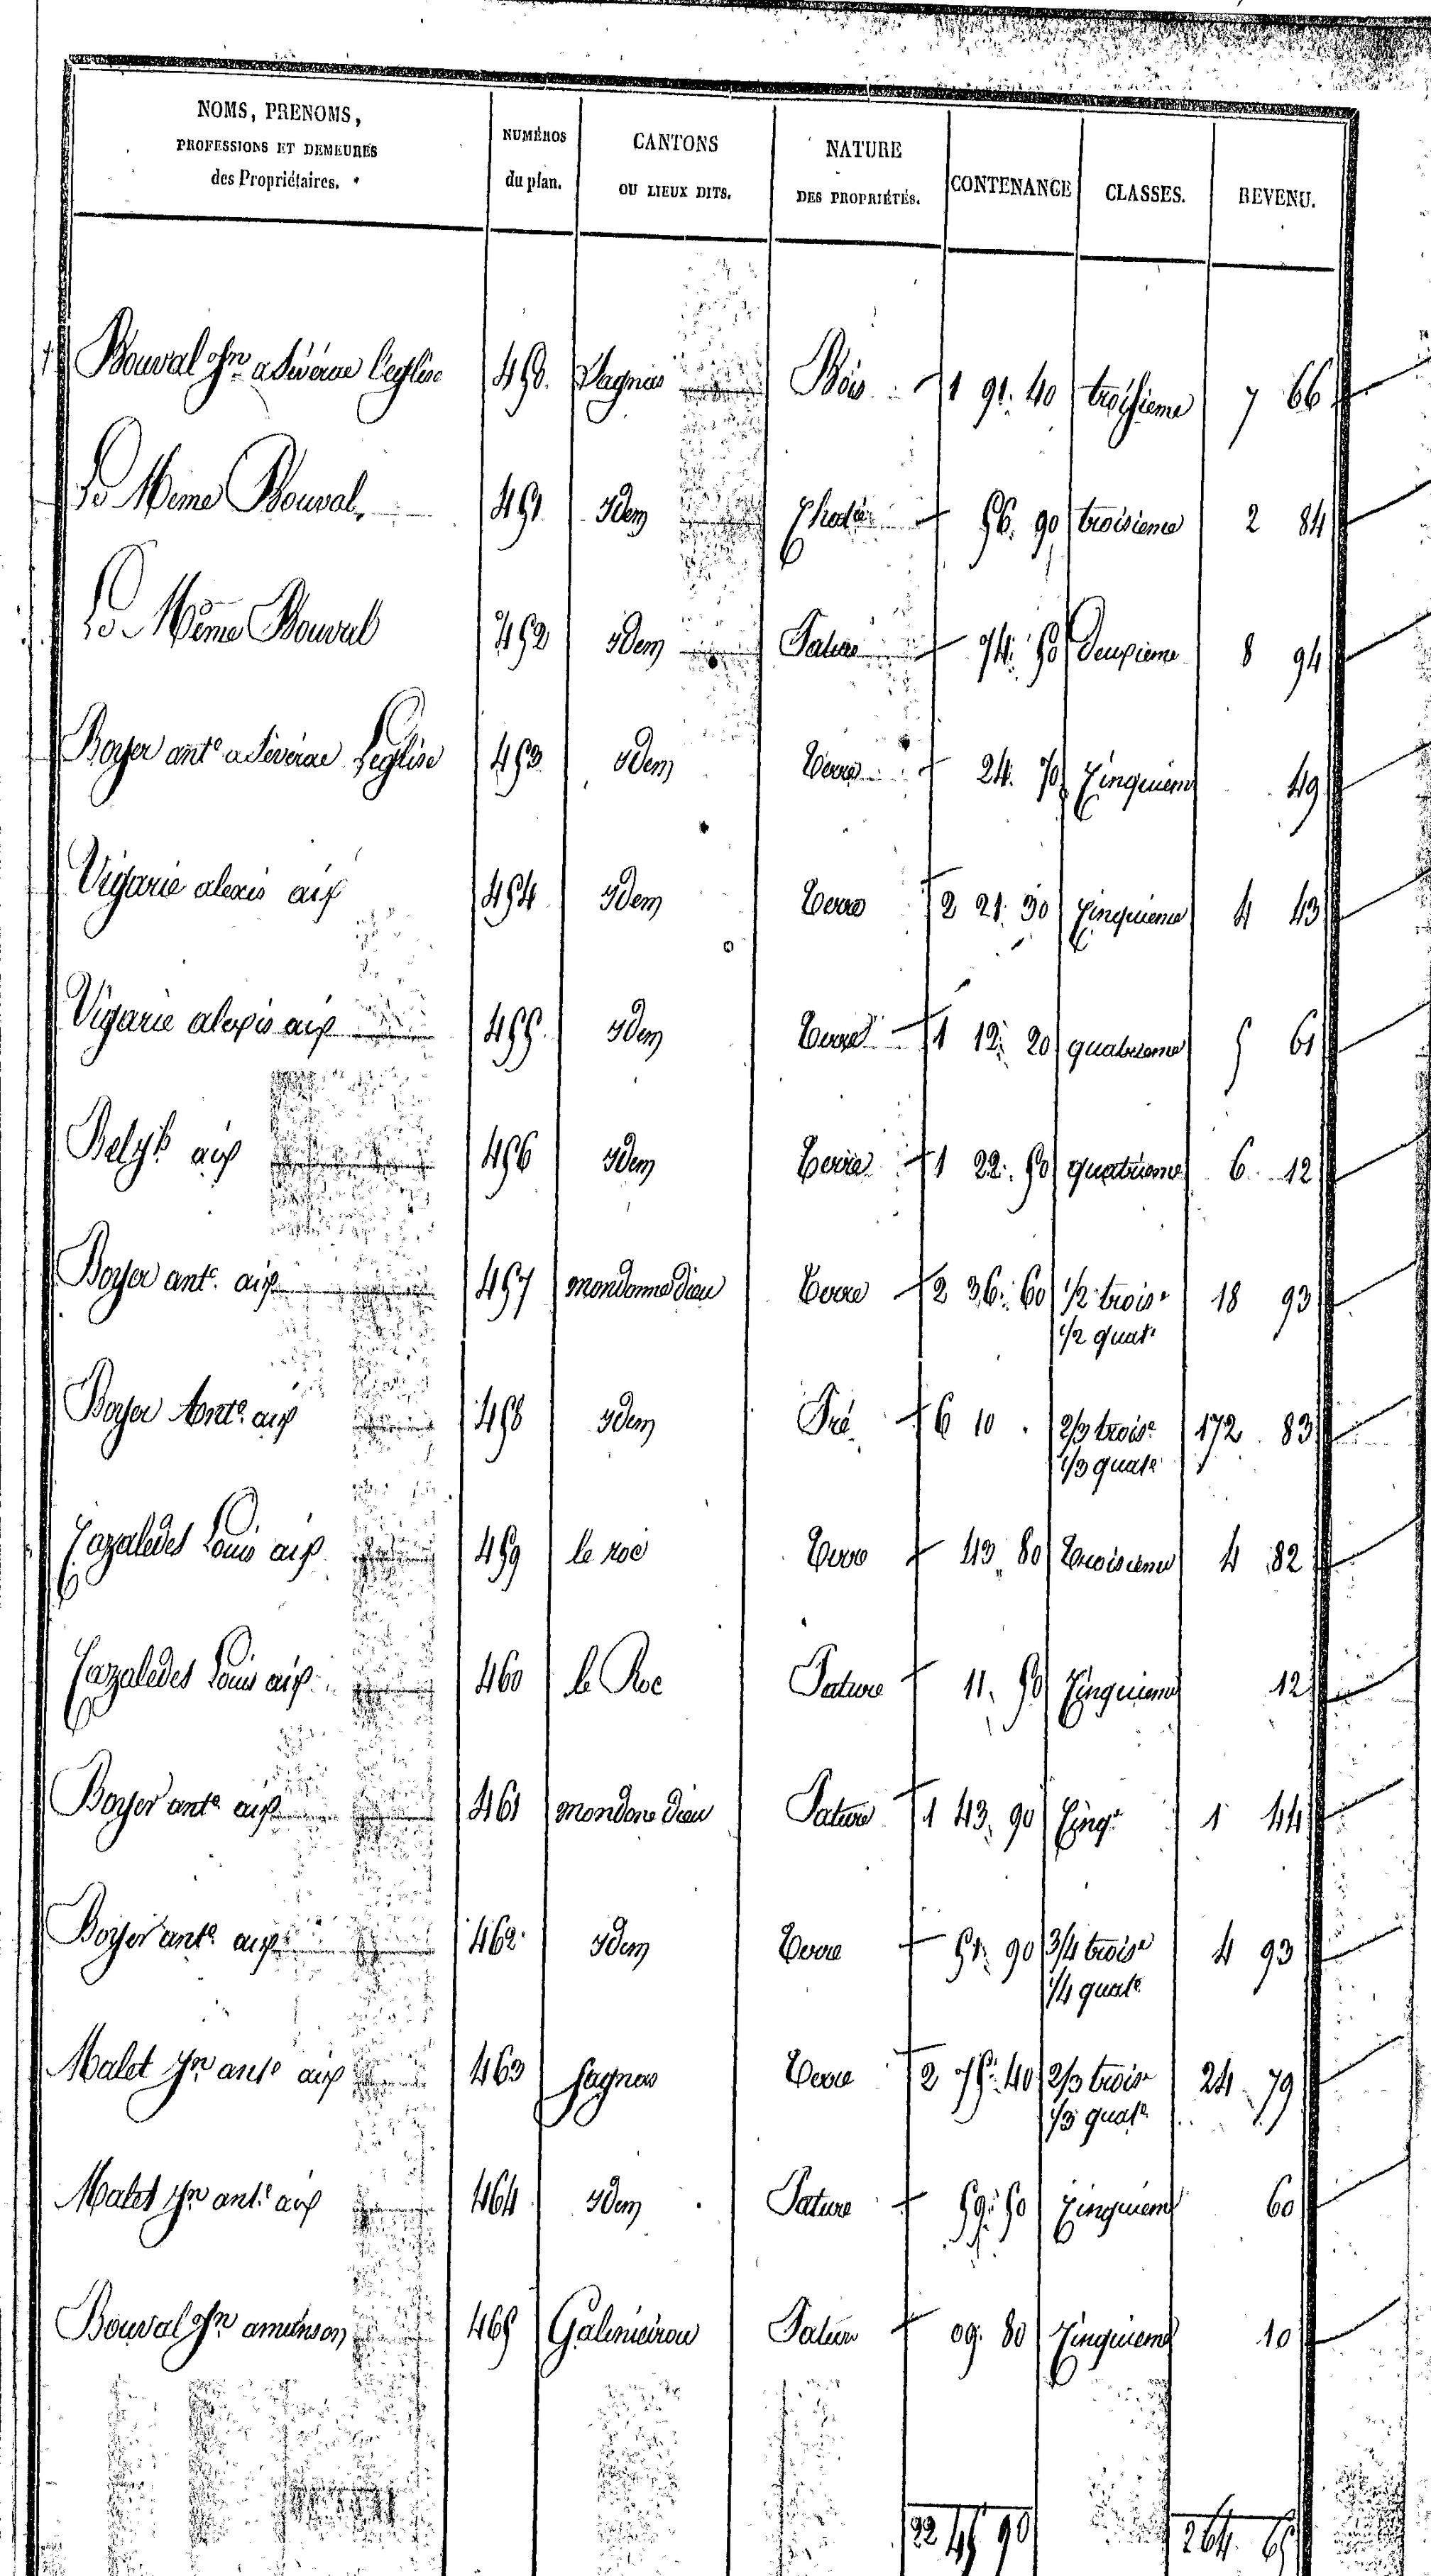 NOMS, PRENOMS, PROFESSIONS ET DEMEURES des Propriétaires. NUMÉROS du plan. CANTONS OU LIEUX DITS. NATURE DES PROPRIÉTÉS. CONTENANCE CLASSES. REVENU.
Bouval Jn a Séverac l'eglise 450. Sagnas Bois 1 91. 40 troisieme 7 66
Le Meme Bouval 451 idem 56. 90 troisieme 2 84
Le Même Bouval 452 idem Pature 74. 50 deuxieme 8 94
Boyer ante a Séverac l'eglise 453 idem Terre 24. 70 Cinquieme 49
Vigarie alexis aix 454 idem Terre 2 21. 30 Cinquieme 4 43
Vigarie alexis aix 455 idem Terre 1 12. 20 quatrieme 5 61
aix 456 idem Terre 1 22. 50 quatrieme 6 12
Boyer ante. aix 457 mondonne dieu Terre 2 36. 60 1/2 trois.e 18 93
1/2 quat.e
Boyer Ante. aix 458 idem Pré 6 10 . 2/3 trois.e 172 83
1/3 quate
Cazaledes Louis aix 459 le roc Terre 43. 80 Troisieme 4 82
Cazaledes Louis aix 460 le Roc Pature 11. 50 Cinquieme 12
Boyer ante aix 461 mondone dieu Pature 1 43. 90 Cinq.e 1 44
Boyer ante. aix 462 idem Terre 51. 90 3/4 troise 4 93
1/4 quate
Malet Jn ante aix 463 Sagnas Terre 2 75. 40 2/3 troise 24 79
1/3 quate
Malet Jn ante aix 464 idem Pature 59. 50 Cinquieme 60
Bouval Jn 465 Galinieirou Pature 09. 80 Cinquieme 10
22 45 90 264. 65